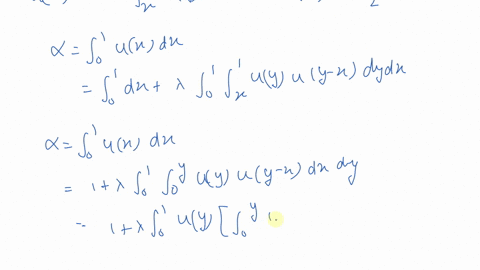 α = ∫₀¹ u(x) dx
= ∫₀¹ dx + λ ∫₀¹ ∫ₓ¹ u(y) u(y-x) dy dx
α = ∫₀¹ u(x) dx
= 1 + λ ∫₀¹ ∫₀^y u(y) u(y-x) dx dy
= 1 + λ ∫₀¹ u(y) [ ∫₀^y